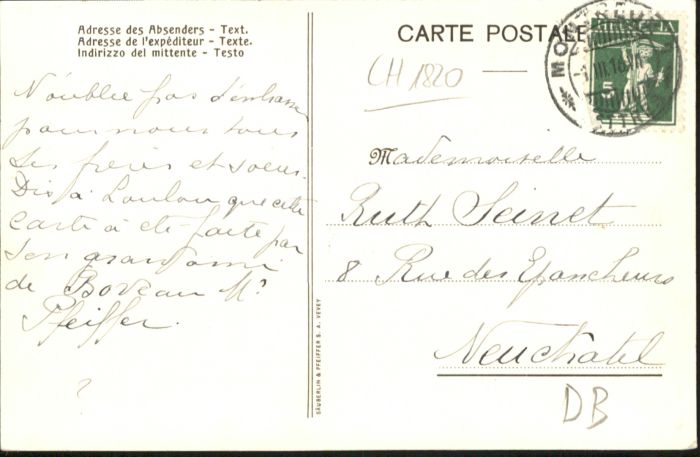 Adresse des Absenders - Text.
Adresse de l'expéditeur - Texte.
Indirizzo del mittente - Testo
N'oublie pas d'embrasser
pour nous tous
tes frères et soeurs.
Dis à Loulou que cette
carte a été faite par
son grand ami
de Boveau Mr
Pfeiffer.
?
SÄUBERLIN & PFEIFFER S. A. VEVEY
CARTE POSTALE
CH 1820
MONTREUX
HELVETIA
5
Mademoiselle
Ruth Seinet
8 Rue des Epancheurs
Neuchatel
DB